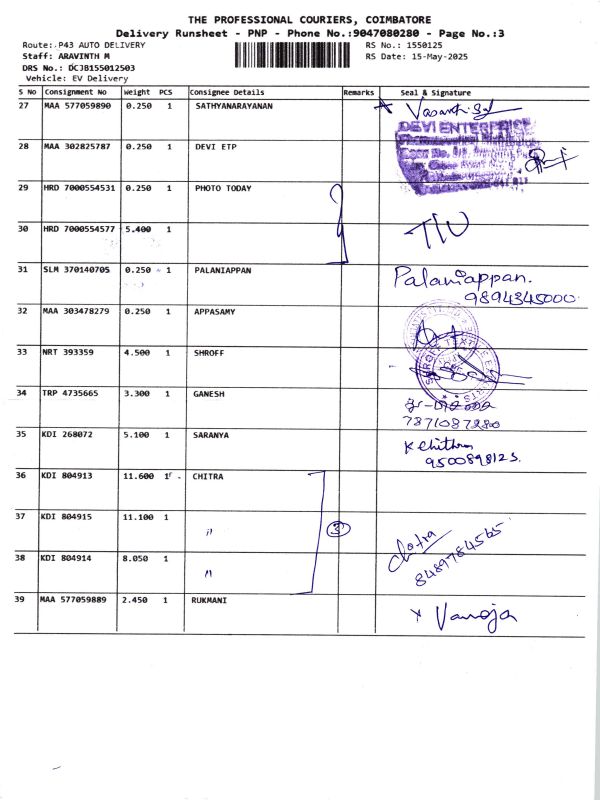 THE PROFESSIONAL COURIERS, COIMBATORE
Delivery Runsheet - PNP - Phone No.:9047080280 - Page No.:3
Route: P43 AUTO DELIVERY RS No.: 1550125
Staff: ARAVINTH M RS Date: 15-May-2025
DRS No.: DCJB155012503
Vehicle: EV Delivery
S No Consignment No Weight PCS Consignee Details Remarks Seal & Signature
27 MAA 577059890 0.250 1 SATHYANARAYANAN Vasanthi
DEVI ENTERPRISE
28 MAA 302825787 0.250 1 DEVI ETP
29 HRD 7000554531 0.250 1 PHOTO TODAY
30 HRD 7000554577 5.400 1
31 SLM 370140705 0.250 1 PALANIAPPAN Palaniappan.
9894345000
32 MAA 303478279 0.250 1 APPASAMY
33 NRT 393359 4.500 1 SHROFF
34 TRP 4735665 3.300 1 GANESH
7871087280
35 KDI 268072 5.100 1 SARANYA K Chithra
9500898123
36 KDI 804913 11.600 1 CHITRA
37 KDI 804915 11.100 1 〃 3
38 KDI 804914 8.050 1 〃 Chitra
8489784565
39 MAA 577059889 2.450 1 RUKMANI x Vanoja